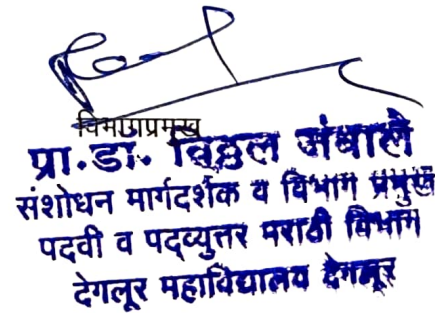 विभागप्रमुख
प्रा.डॉ. विठ्ठल जंबाले
संशोधन मार्गदर्शक व विभाग प्रमुख
पदवी व पदव्युत्तर मराठी विभाग
देगलूर महाविद्यालय देगलूर